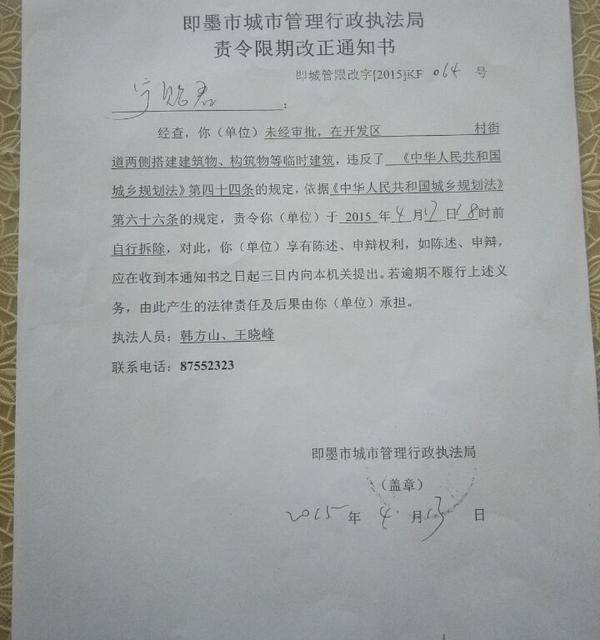 即墨市城市管理行政执法局
责令限期改正通知书
即城管限改字[2015]KF 064 号
：
经查，你（单位）未经审批，在开发区 村街
道两侧搭建建筑物、构筑物等临时建筑，违反了 《中华人民共和国
城乡规划法》第四十四条的规定，依据《中华人民共和国城乡规划法》
第六十六条的规定，责令你（单位）于 2015 年 4 月 17 日 18 时前
自行拆除，对此，你（单位）享有陈述、申辩权利，如陈述、申辩，
应在收到本通知书之日起三日内向本机关提出。若逾期不履行上述义
务，由此产生的法律责任及后果由你（单位）承担。
执法人员：韩方山、王晓峰
联系电话：87552323
即墨市城市管理行政执法局
（盖章）
2015 年 4 月 13 日